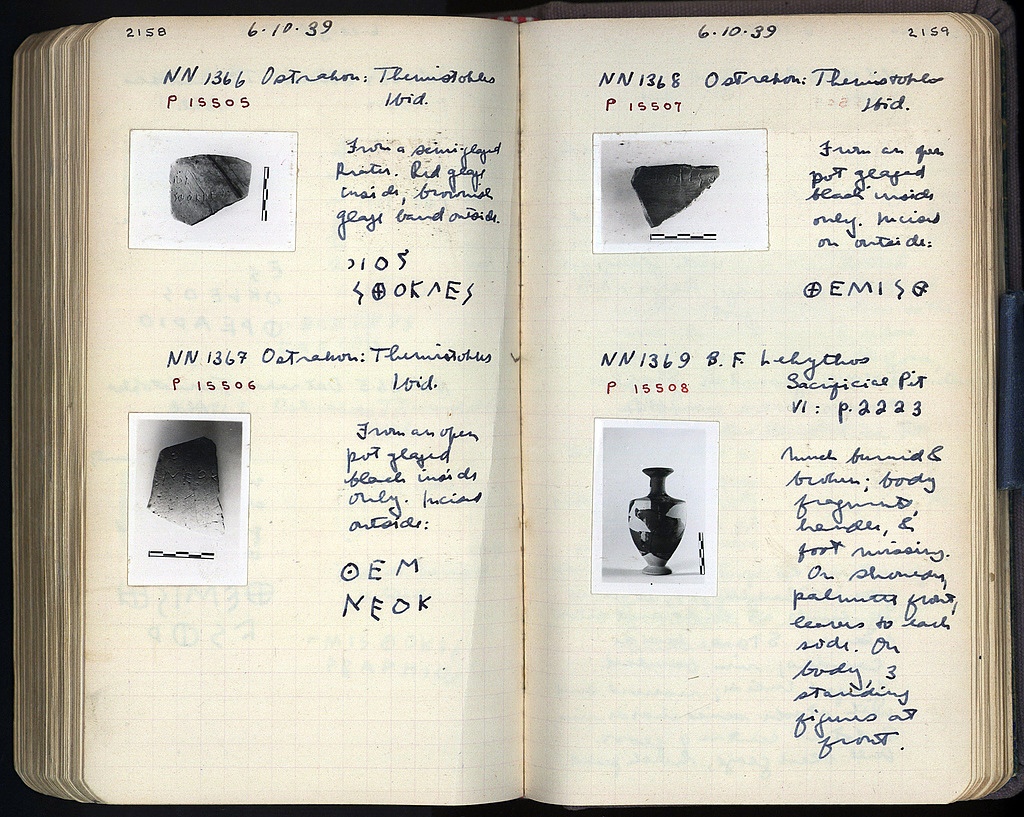 2158
6·10·39
NN 1366 Ostrakon: Themistokles
P 15505
Ibid.
From a semi-glazed
krater. Red glaze
inside, brownish
glaze band outside.
ƆIOS
S⊕OKΛES
NN 1367 Ostrakon: Themistokles
P 15506
Ibid.
From an open
pot glazed
black inside
only. Incised
outside:
⊙EM
NEOK
2159
6·10·39
NN 1368 Ostrakon: Themistokles
P 15507
Ibid.
From an open
pot glazed
black inside
only. Incised
on outside:
⊕EMIS⊕
NN 1369 B. F. Lekythos
P 15508
Sacrificial Pit
VI: p. 2223
Much burned &
broken; body
fragments,
handle, &
foot missing.
On shoulder,
palmette front,
leaves to each
side. On
body, 3
standing
figures at
front.